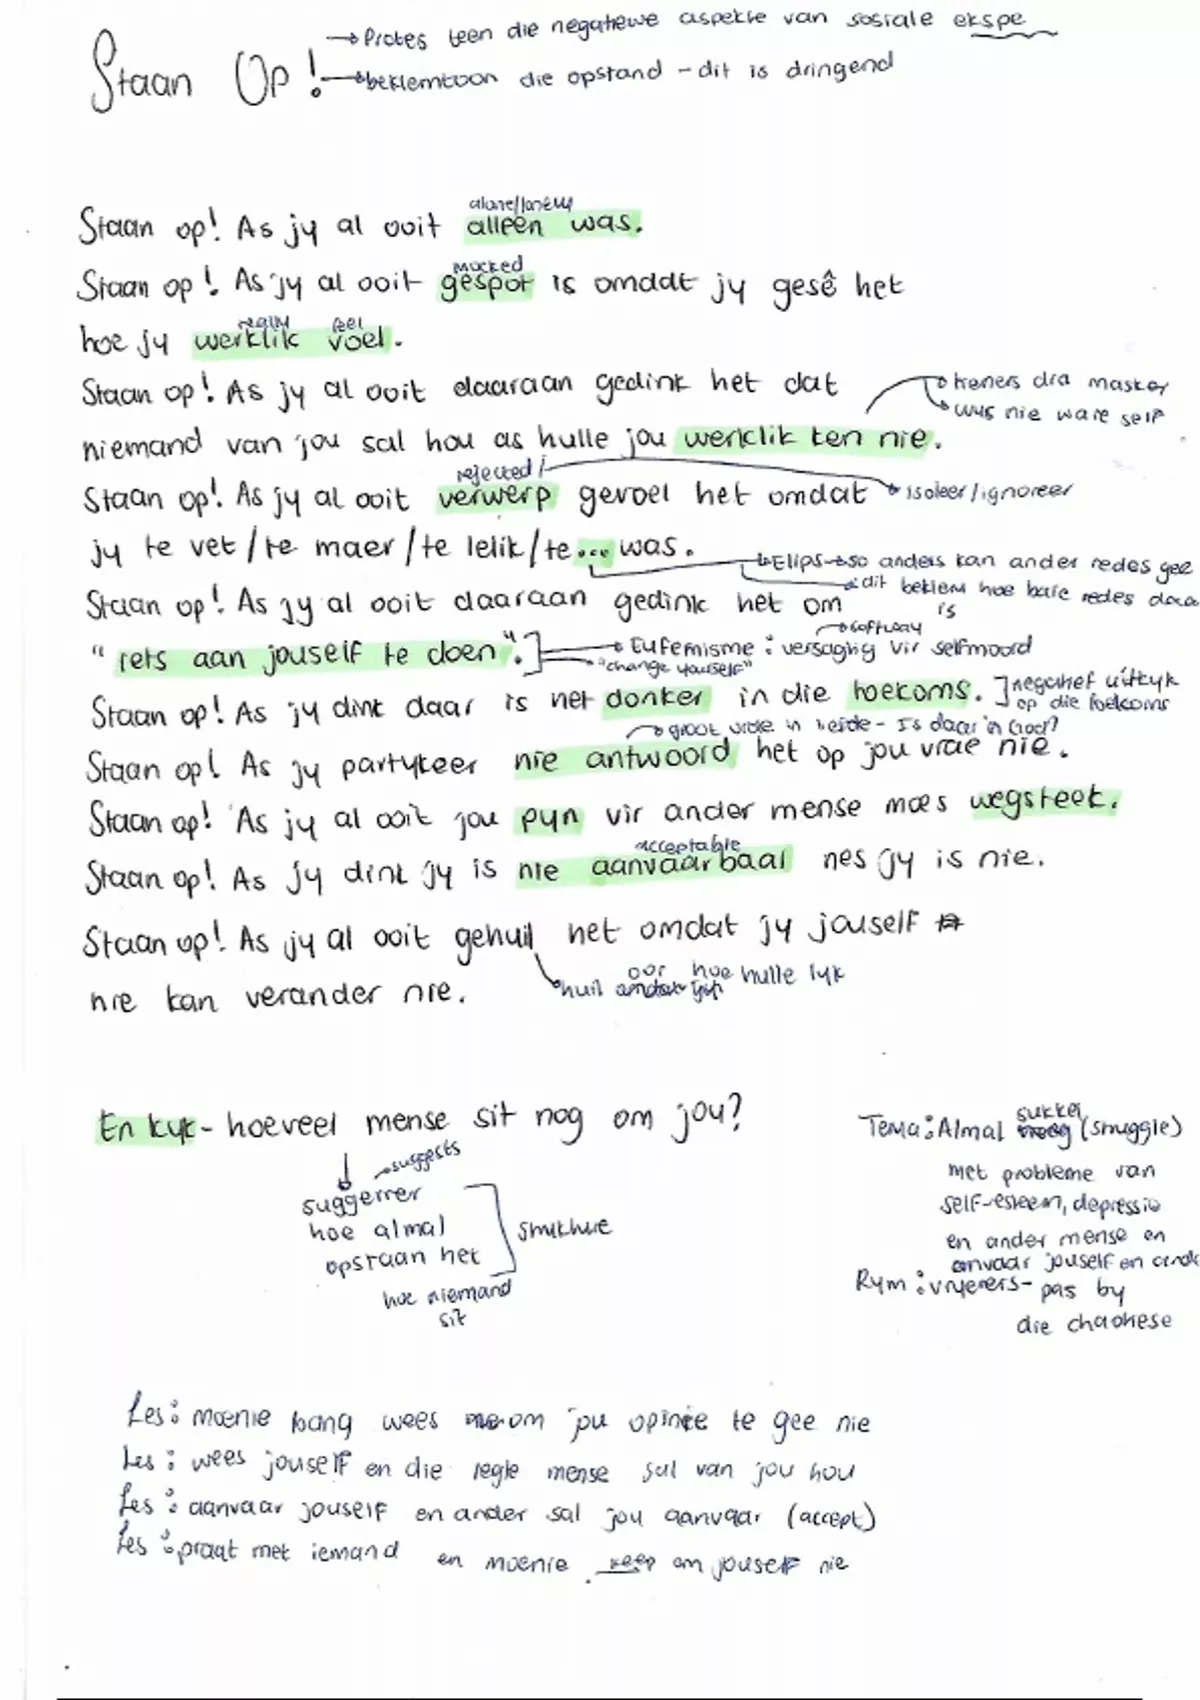 → Protes teen die negatiewe aspekte van sosiale ekspe
Staan Op!
→ beklemtoon die opstand - dit is dringend
alone/lonely
Staan op! As jy al ooit alleen was.
mocked
Staan op! As jy al ooit gespot is omdat jy gesê het
really feel
hoe jy werklik voel.
Staan op! As jy al ooit daaraan gedink het dat
→ tieners dra masker
→ wys nie ware self
niemand van jou sal hou as hulle jou werklik ken nie.
rejected
Staan op! As jy al ooit verwerp gevoel het omdat
→ isoleer/ignoreer
jy te vet/te maer/te lelik/te... was.
→ Elips → so anders kan ander redes gee
→ dit beklem hoe baie redes daar is
Staan op! As jy al ooit daaraan gedink het om
→ softway
"iets aan jouself te doen".
→ Eufemisme : versagtig vir selfmoord
→ "change yourself"
Staan op! As jy dink daar is net donker in die toekoms.
negatief uitkyk
op die toekoms
→ groot vrae in beide - Is daar 'n God?
Staan op! As jy partykeer nie antwoord het op jou vrae nie.
Staan op! As jy al ooit jou pyn vir ander mense moes wegsteek.
acceptable
Staan op! As jy dink jy is nie aanvaarbaar nes jy is nie.
Staan op! As jy al ooit gehuil het omdat jy jouself
nie kan verander nie.
huil oor hoe hulle lyk
En kyk- hoeveel mense sit nog om jou?
→ suggests
suggereer
hoe almal
opstaan het
struktuur
hoe niemand
sit
Tema: Almal sukkel (struggle)
met probleme van
self-esteem, depressie
en ander mense en
anvaar jouself en ande
Rym : vryevers- pas by
die chaotiese
Les: moenie bang wees om jou opinie te gee nie
Les : wees jouself en die regte mense sal van jou hou
Les : aanvaar jouself en ander sal jou aanvaar (accept)
Les : praat met iemand en moenie keep om jouself nie